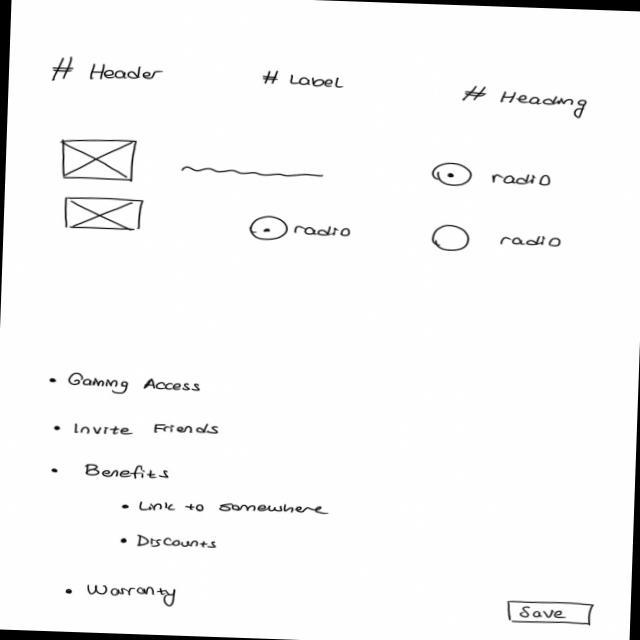 # Header
# Label
# Heading
radio
radio
radio
• Gaming Access
• Invite Friends
• Benefits
• Link to somewhere
• Discounts
• Warranty
Save